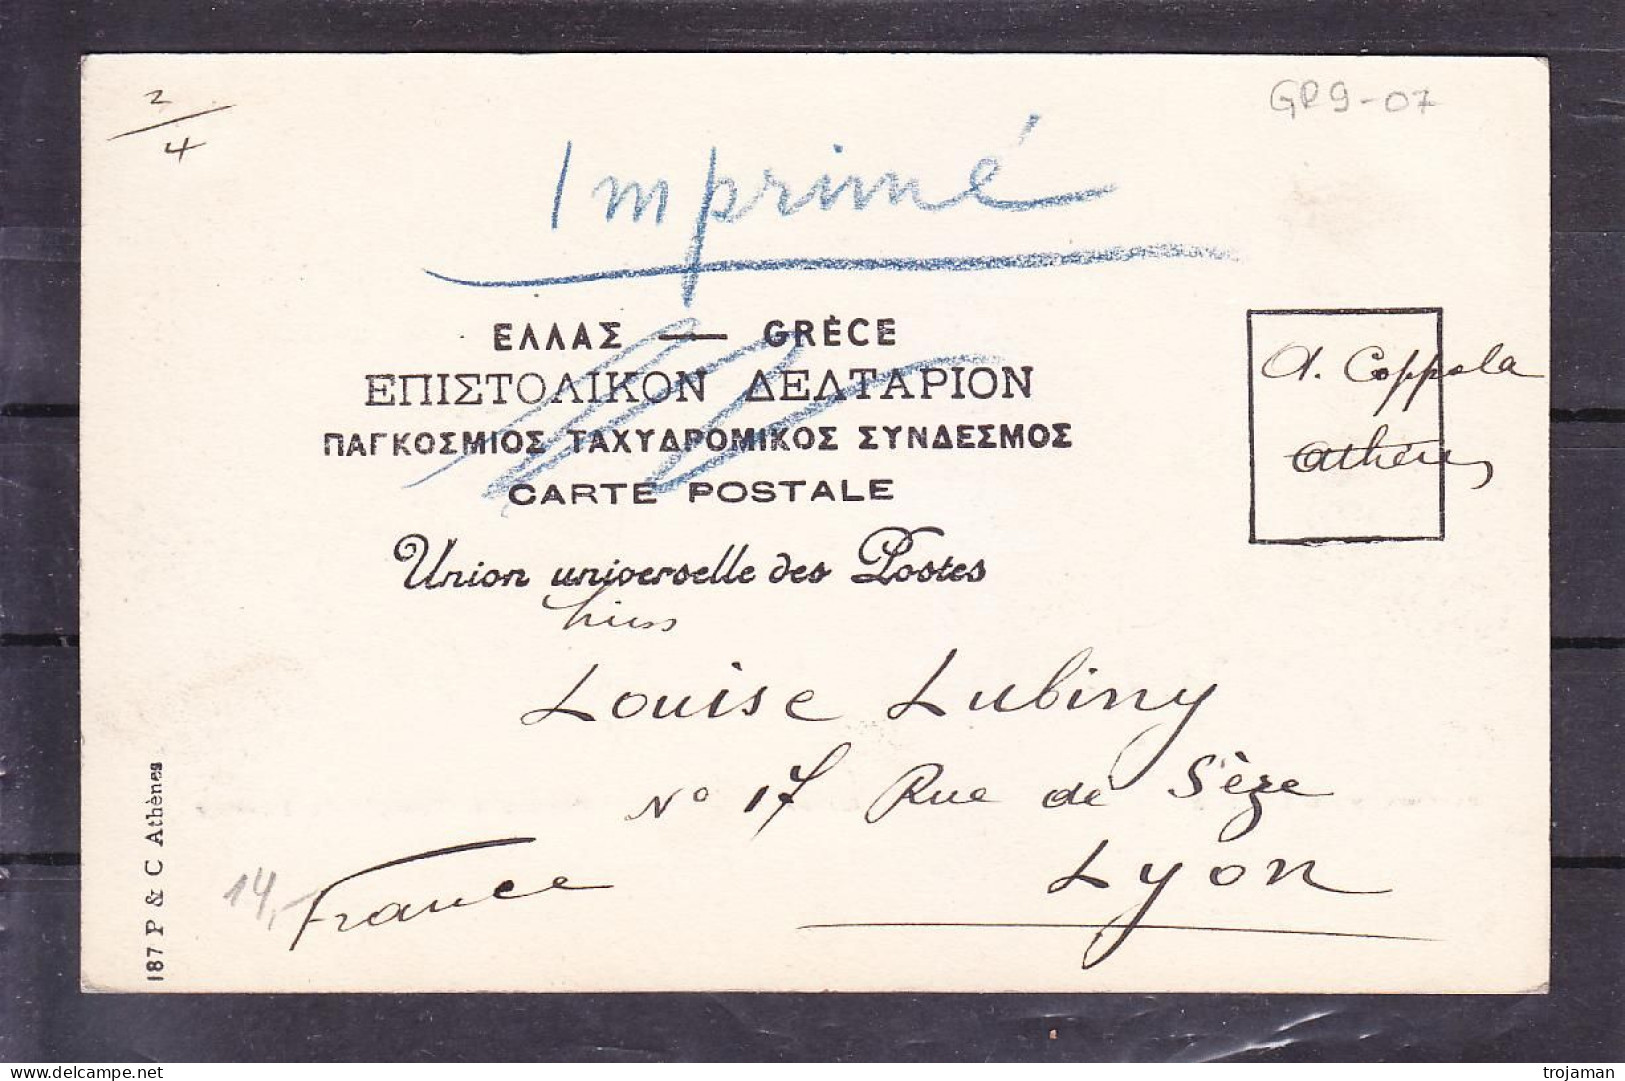 2
4
GR9-07
Imprimé
ΕΛΛΑΣ — GRÈCE
ΕΠΙΣΤΟΛΙΚΟΝ ΔΕΛΤΑΡΙΟΝ
ΠΑΓΚΟΣΜΙΟΣ ΤΑΧΥΔΡΟΜΙΚΟΣ ΣΥΝΔΕΣΜΟΣ
CARTE POSTALE
Union universelle des Postes
A. Coppola
Athènes
Miss
Louise Lubiny
No 17 Rue de Sèze
Lyon
France
14,-
187 P & C Athènes
trojaman